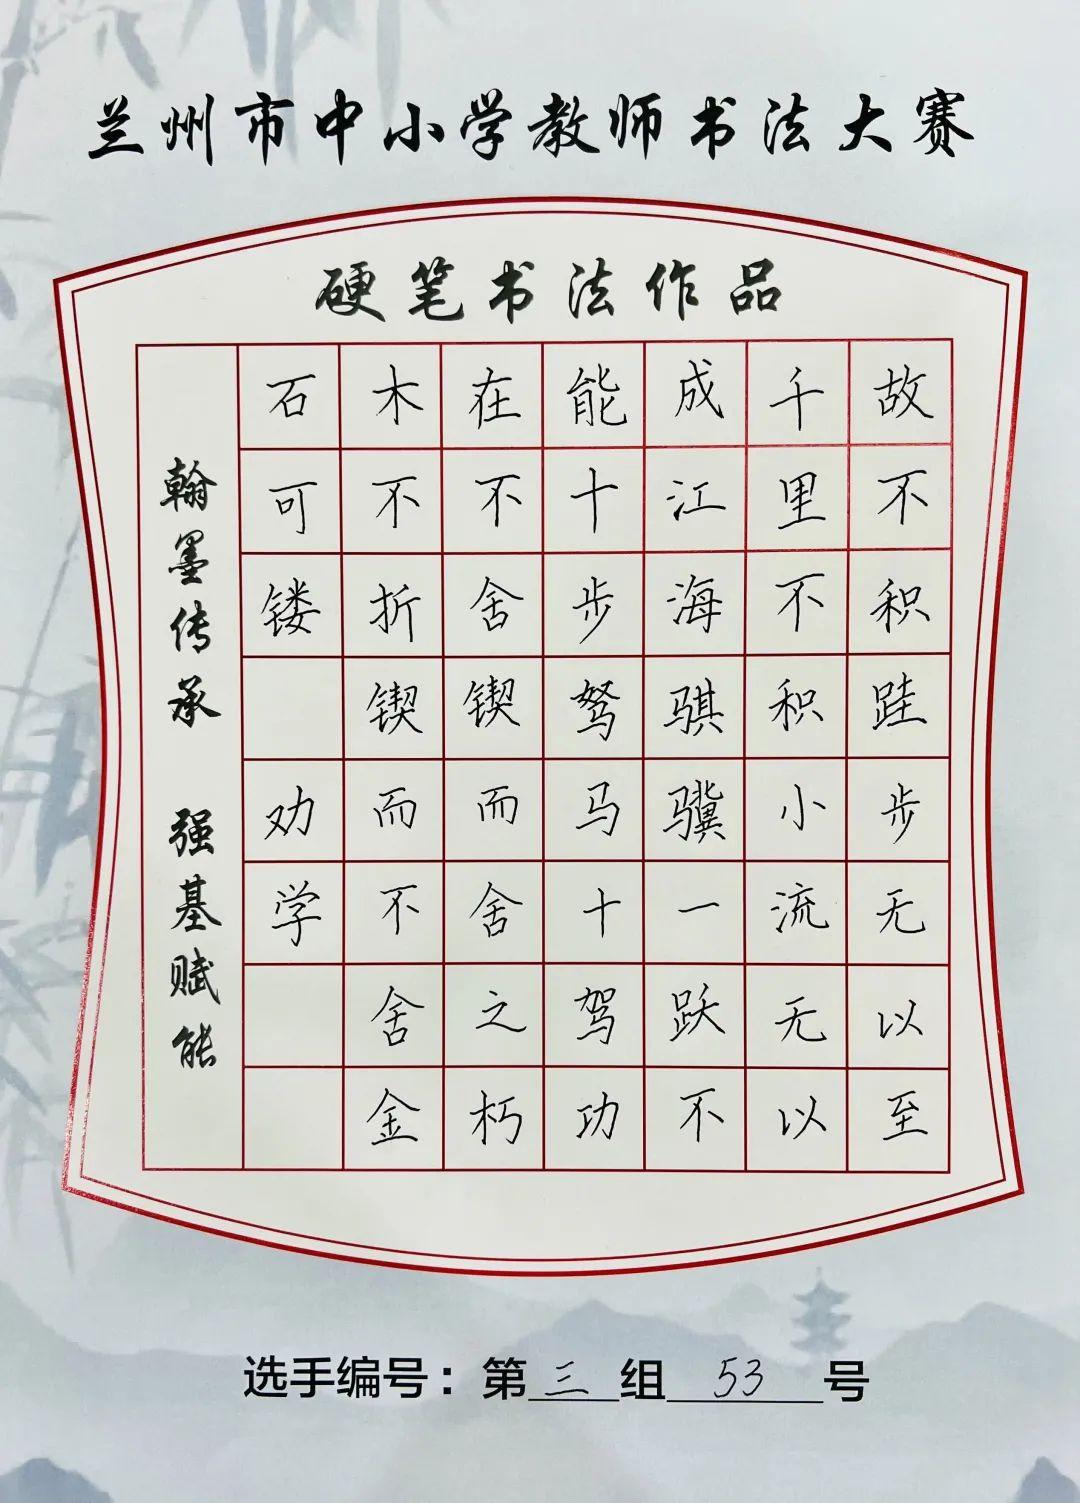 兰州市中小学教师书法大赛
硬笔书法作品
故不积跬步无以至
千里不积小流无以
成江海骐骥一跃不
能十步驽马十驾功
在不舍锲而舍之朽
木不折锲而不舍金
石可镂 劝学
翰墨传承 强基赋能
选手编号：第三组53号